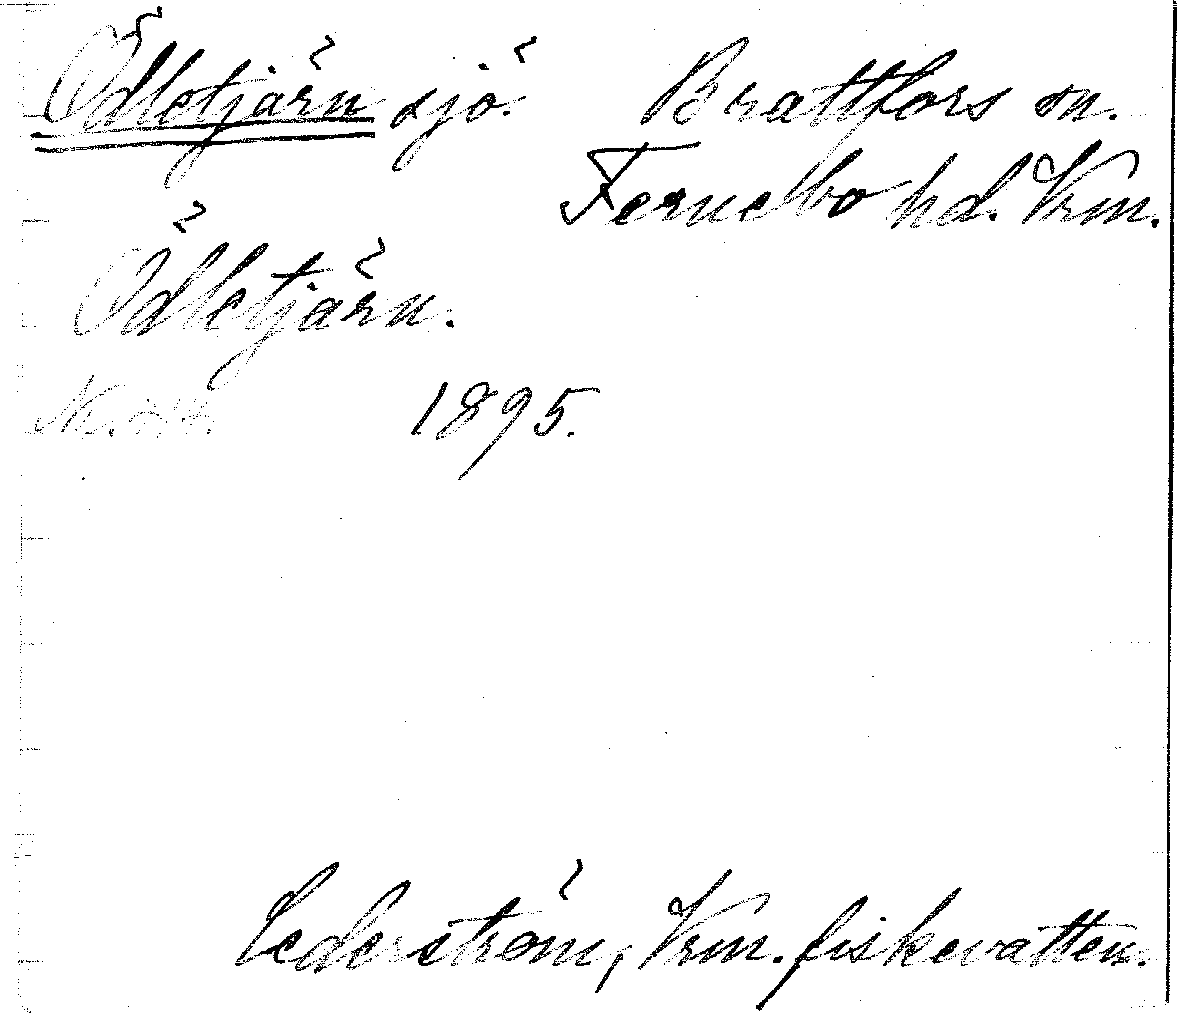 Ödletjärn sjö. Brattfors sn.
Fernebo hd. Vrm.
Ödletjärn.
Nr. 1895.
Cederström, Vrm. fiskevatten.